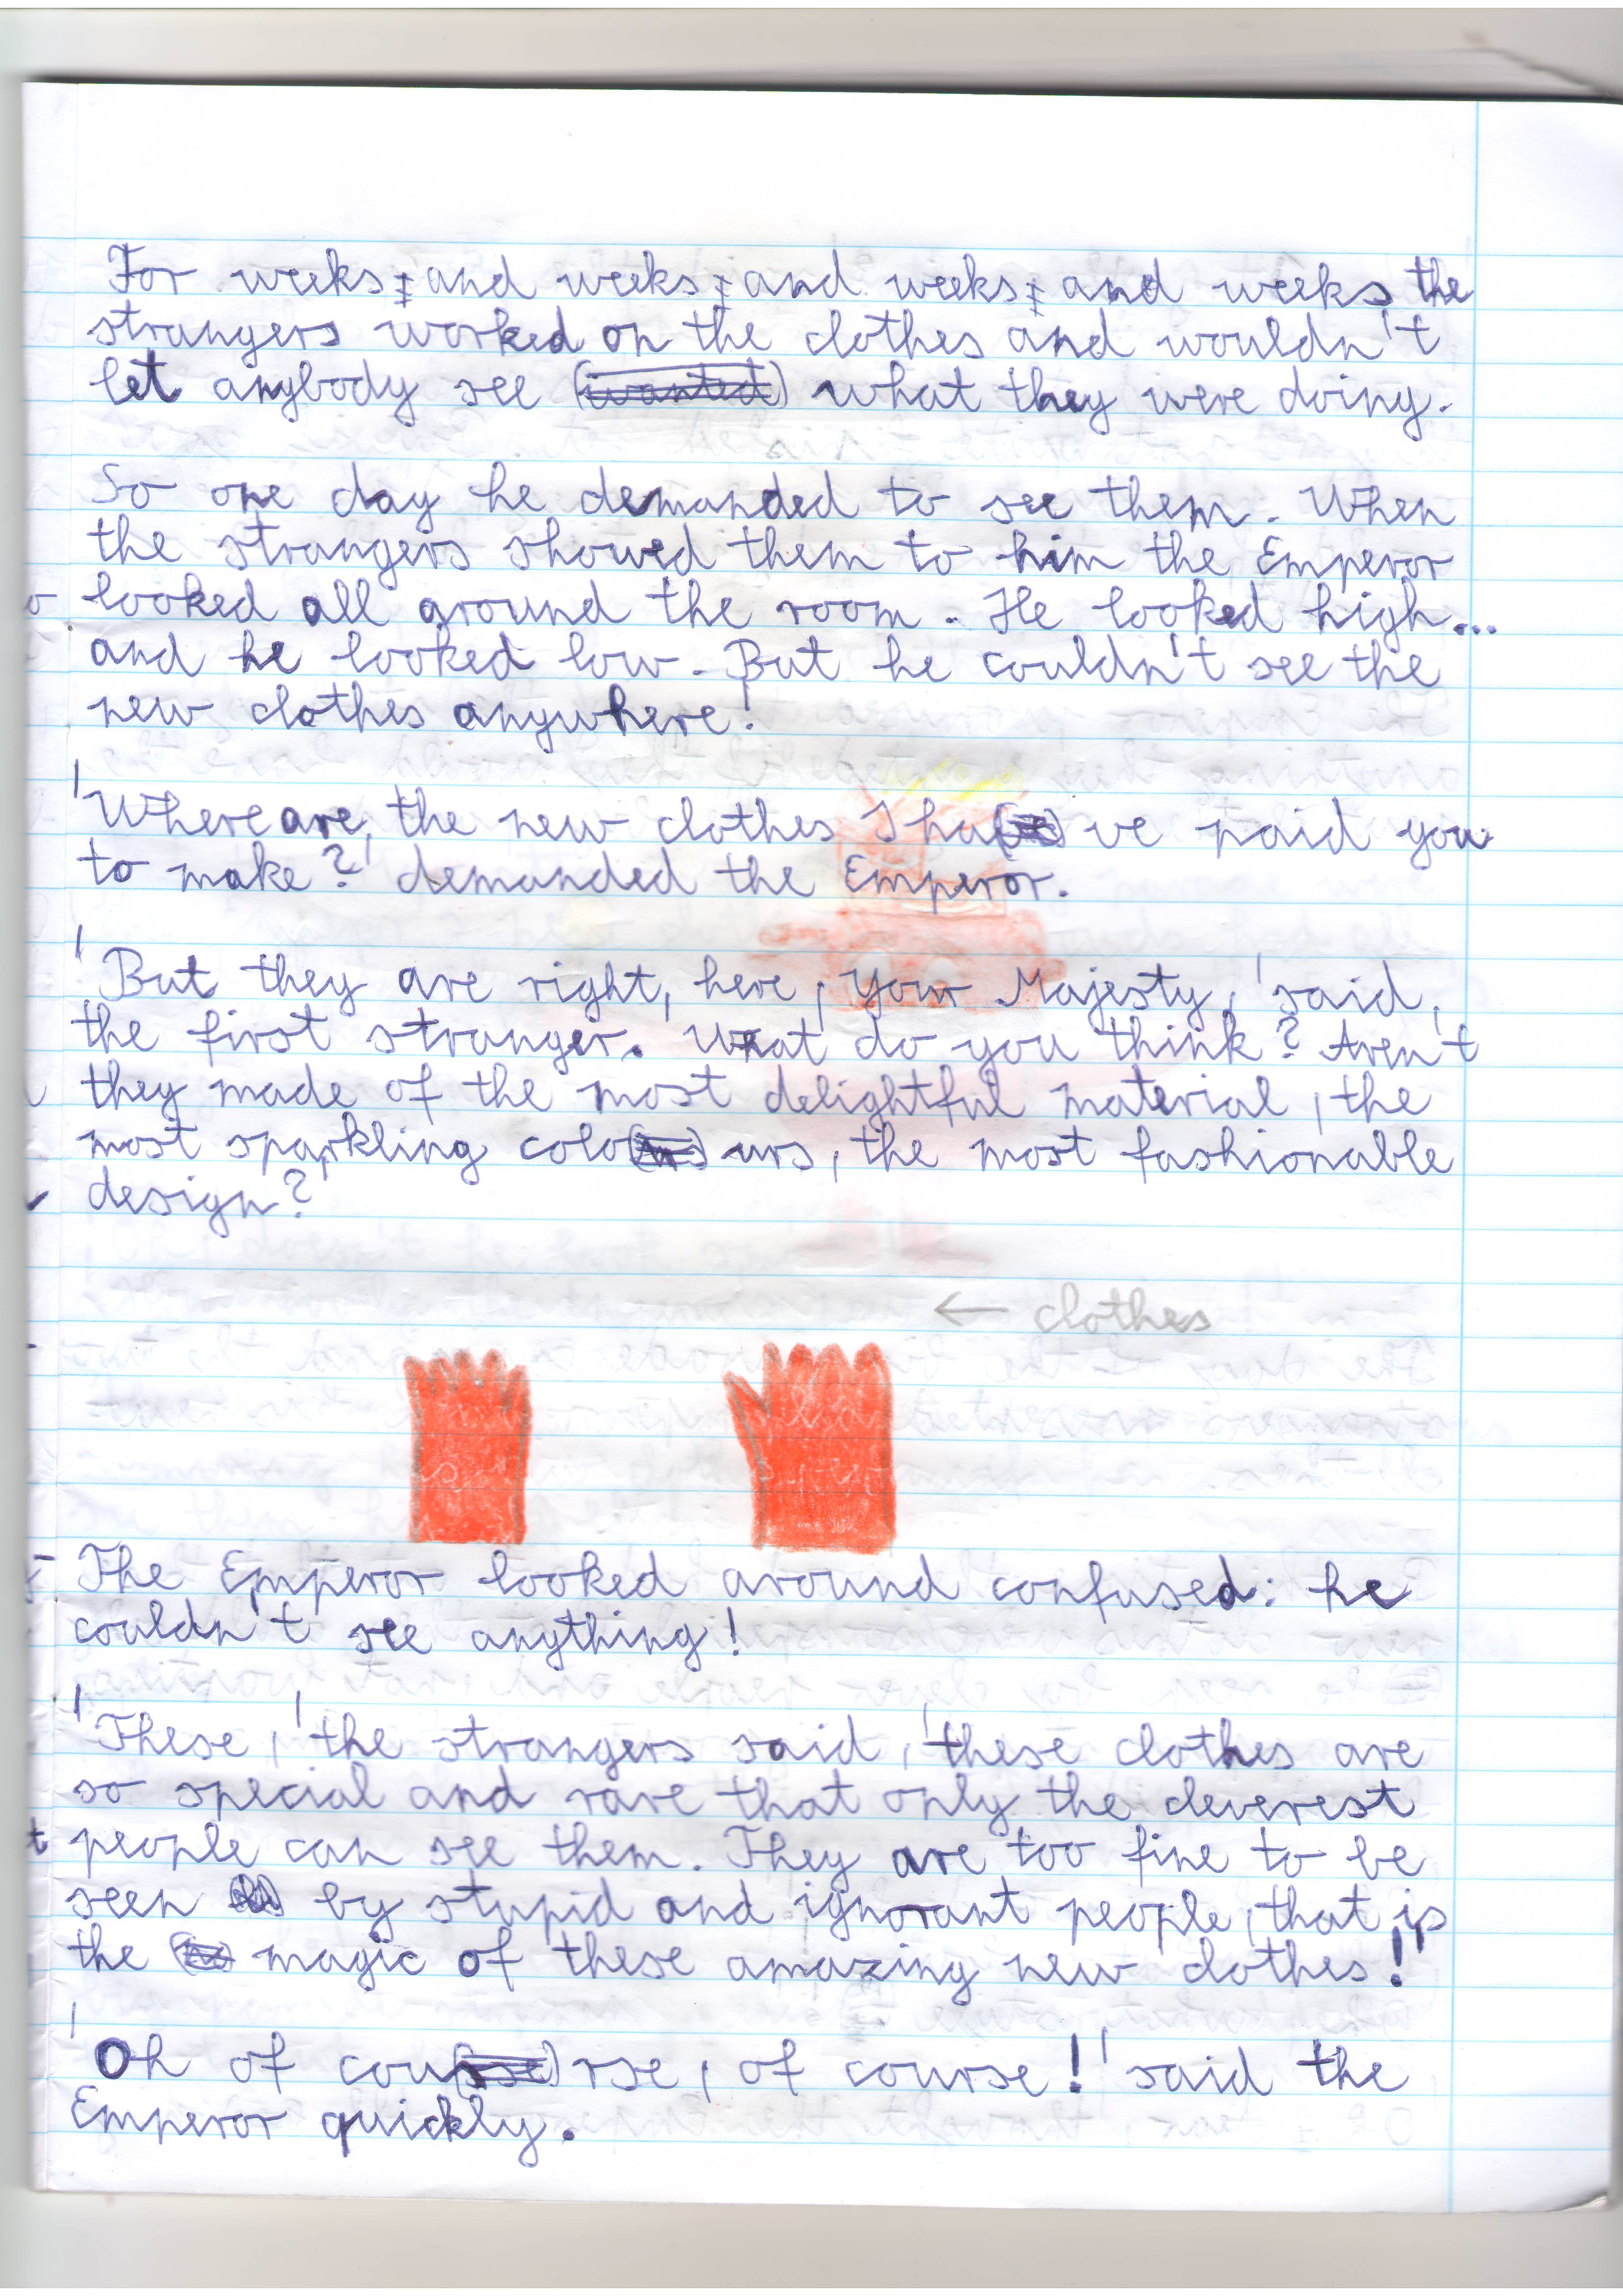 For weeks, and weeks, and weeks, and weeks the
strangers worked on the clothes and wouldn't
let anybody see what they were doing.
So one day he demanded to see them. When
the strangers showed them to him the Emperor
looked all around the room. He looked high...
and he looked low. But he couldn't see the
new clothes anywhere!
'Where are, the new clothes I have paid you
to make?' demanded the Emperor.
'But they are right, here, Your Majesty,' said,
the first stranger. 'What do you think? Aren't
they made of the most delightful material, the
most sparkling colours, the most fashionable
design?'
← clothes
The Emperor looked around confused: he
couldn't see anything!
'These,' the strangers said, 'these clothes are
so special and rare that only the cleverest
people can see them. They are too fine to be
seen by stupid and ignorant people, that is
the magic of these amazing new clothes!'
'Oh of course, of course!' said the
Emperor quickly.